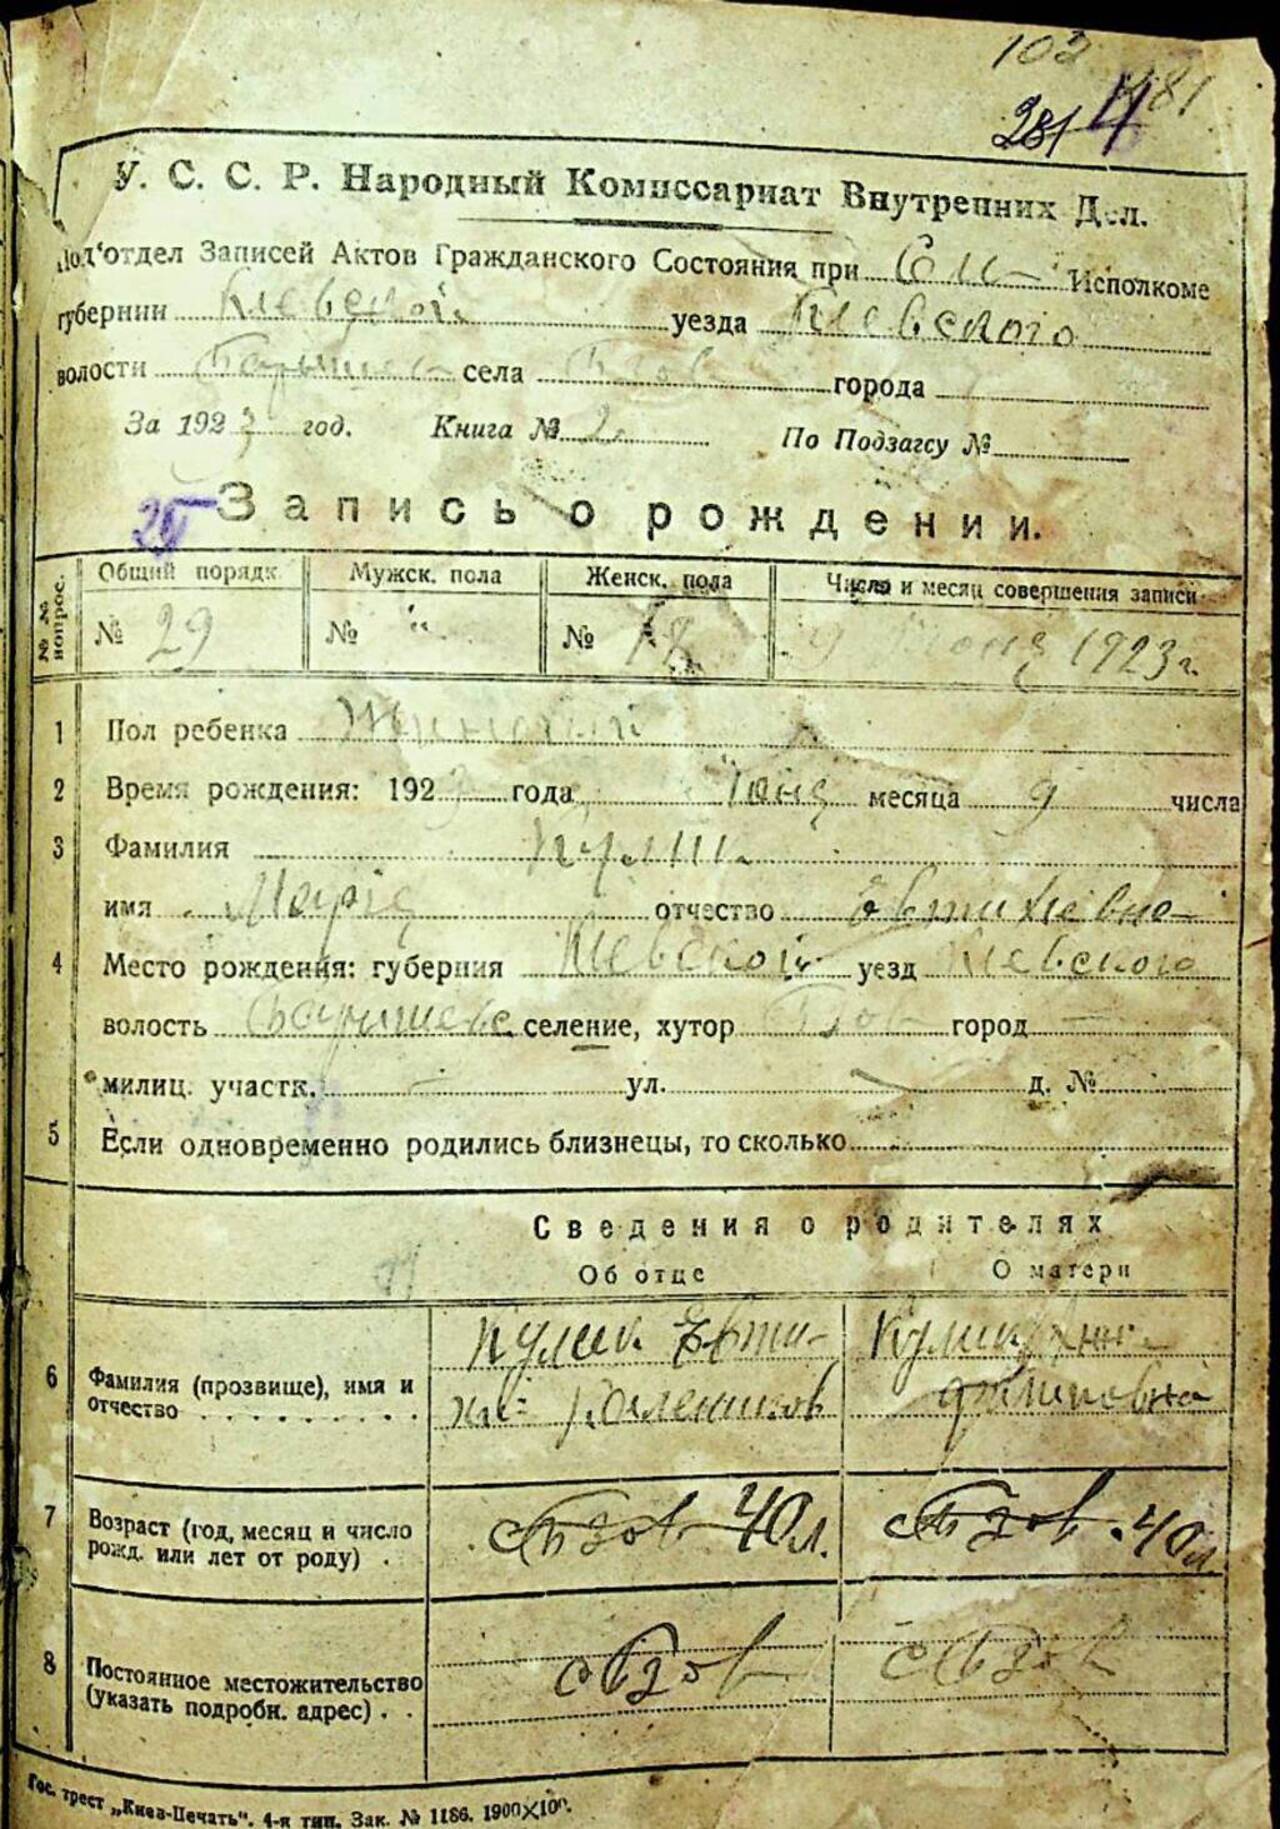 102
281 4 281
У. С. С. Р. Народный Комиссариат Внутренних Дел.
Под‘отдел Записей Актов Гражданского Состояния при Сил Исполкоме
губернии Киевской уезда Киевского
волости Барышев села Бзов города
За 1923 год. Книга № 2. По Подзагсу №
Запись о рождении.
№ № вопрос. Общий порядк. Мужск. пола Женск. пола Число и месяц совершения записи
№ 29 № " № 18 9 Июня 1923 г.
1 Пол ребенка Женский
2 Время рождения: 1923 года Июня месяца 9 числа
3 Фамилия Кулик
имя Мария отчество Евтихиевна
4 Место рождения: губерния Киевской уезд Киевского
волость Барышевс селение, хутор Бзов город —
милиц. участк. — ул. — д. №
5 Если одновременно родились близнецы, то сколько
Сведения о родителях
Об отце О матери
6 Фамилия (прозвище), имя и отчество Кулик Евти- Кулик Анна
хий Филиповна
7 Возраст (год, месяц и число рожд. или лет от роду) с Бзов 40 л. с Бзов. 40 л
8 Постоянное местожительство с Бзов с Бзов
(указать подробн. адрес)
Гос. трест „Киев-Печать“. 4-я тип. Зак. № 1186. 1900×100.